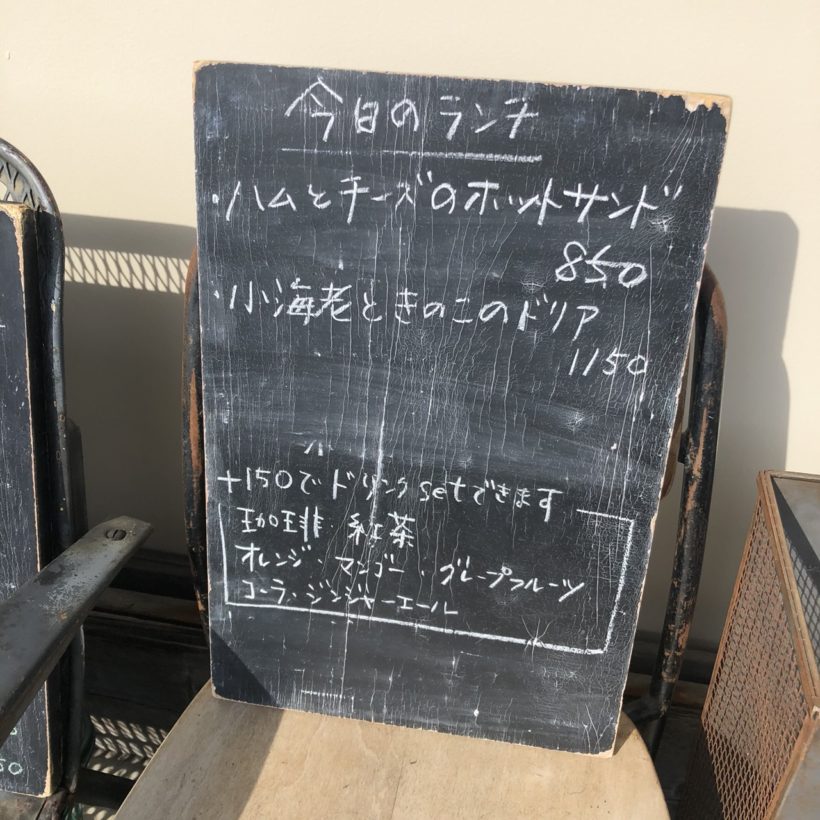 今日のランチ
・ハムとチーズのホットサンド
850
・小海老ときのこのドリア
1150
+150でドリンクsetできます
珈琲 紅茶
オレンジ・マンゴー・グレープフルーツ
コーラ・ジンジャーエール
50